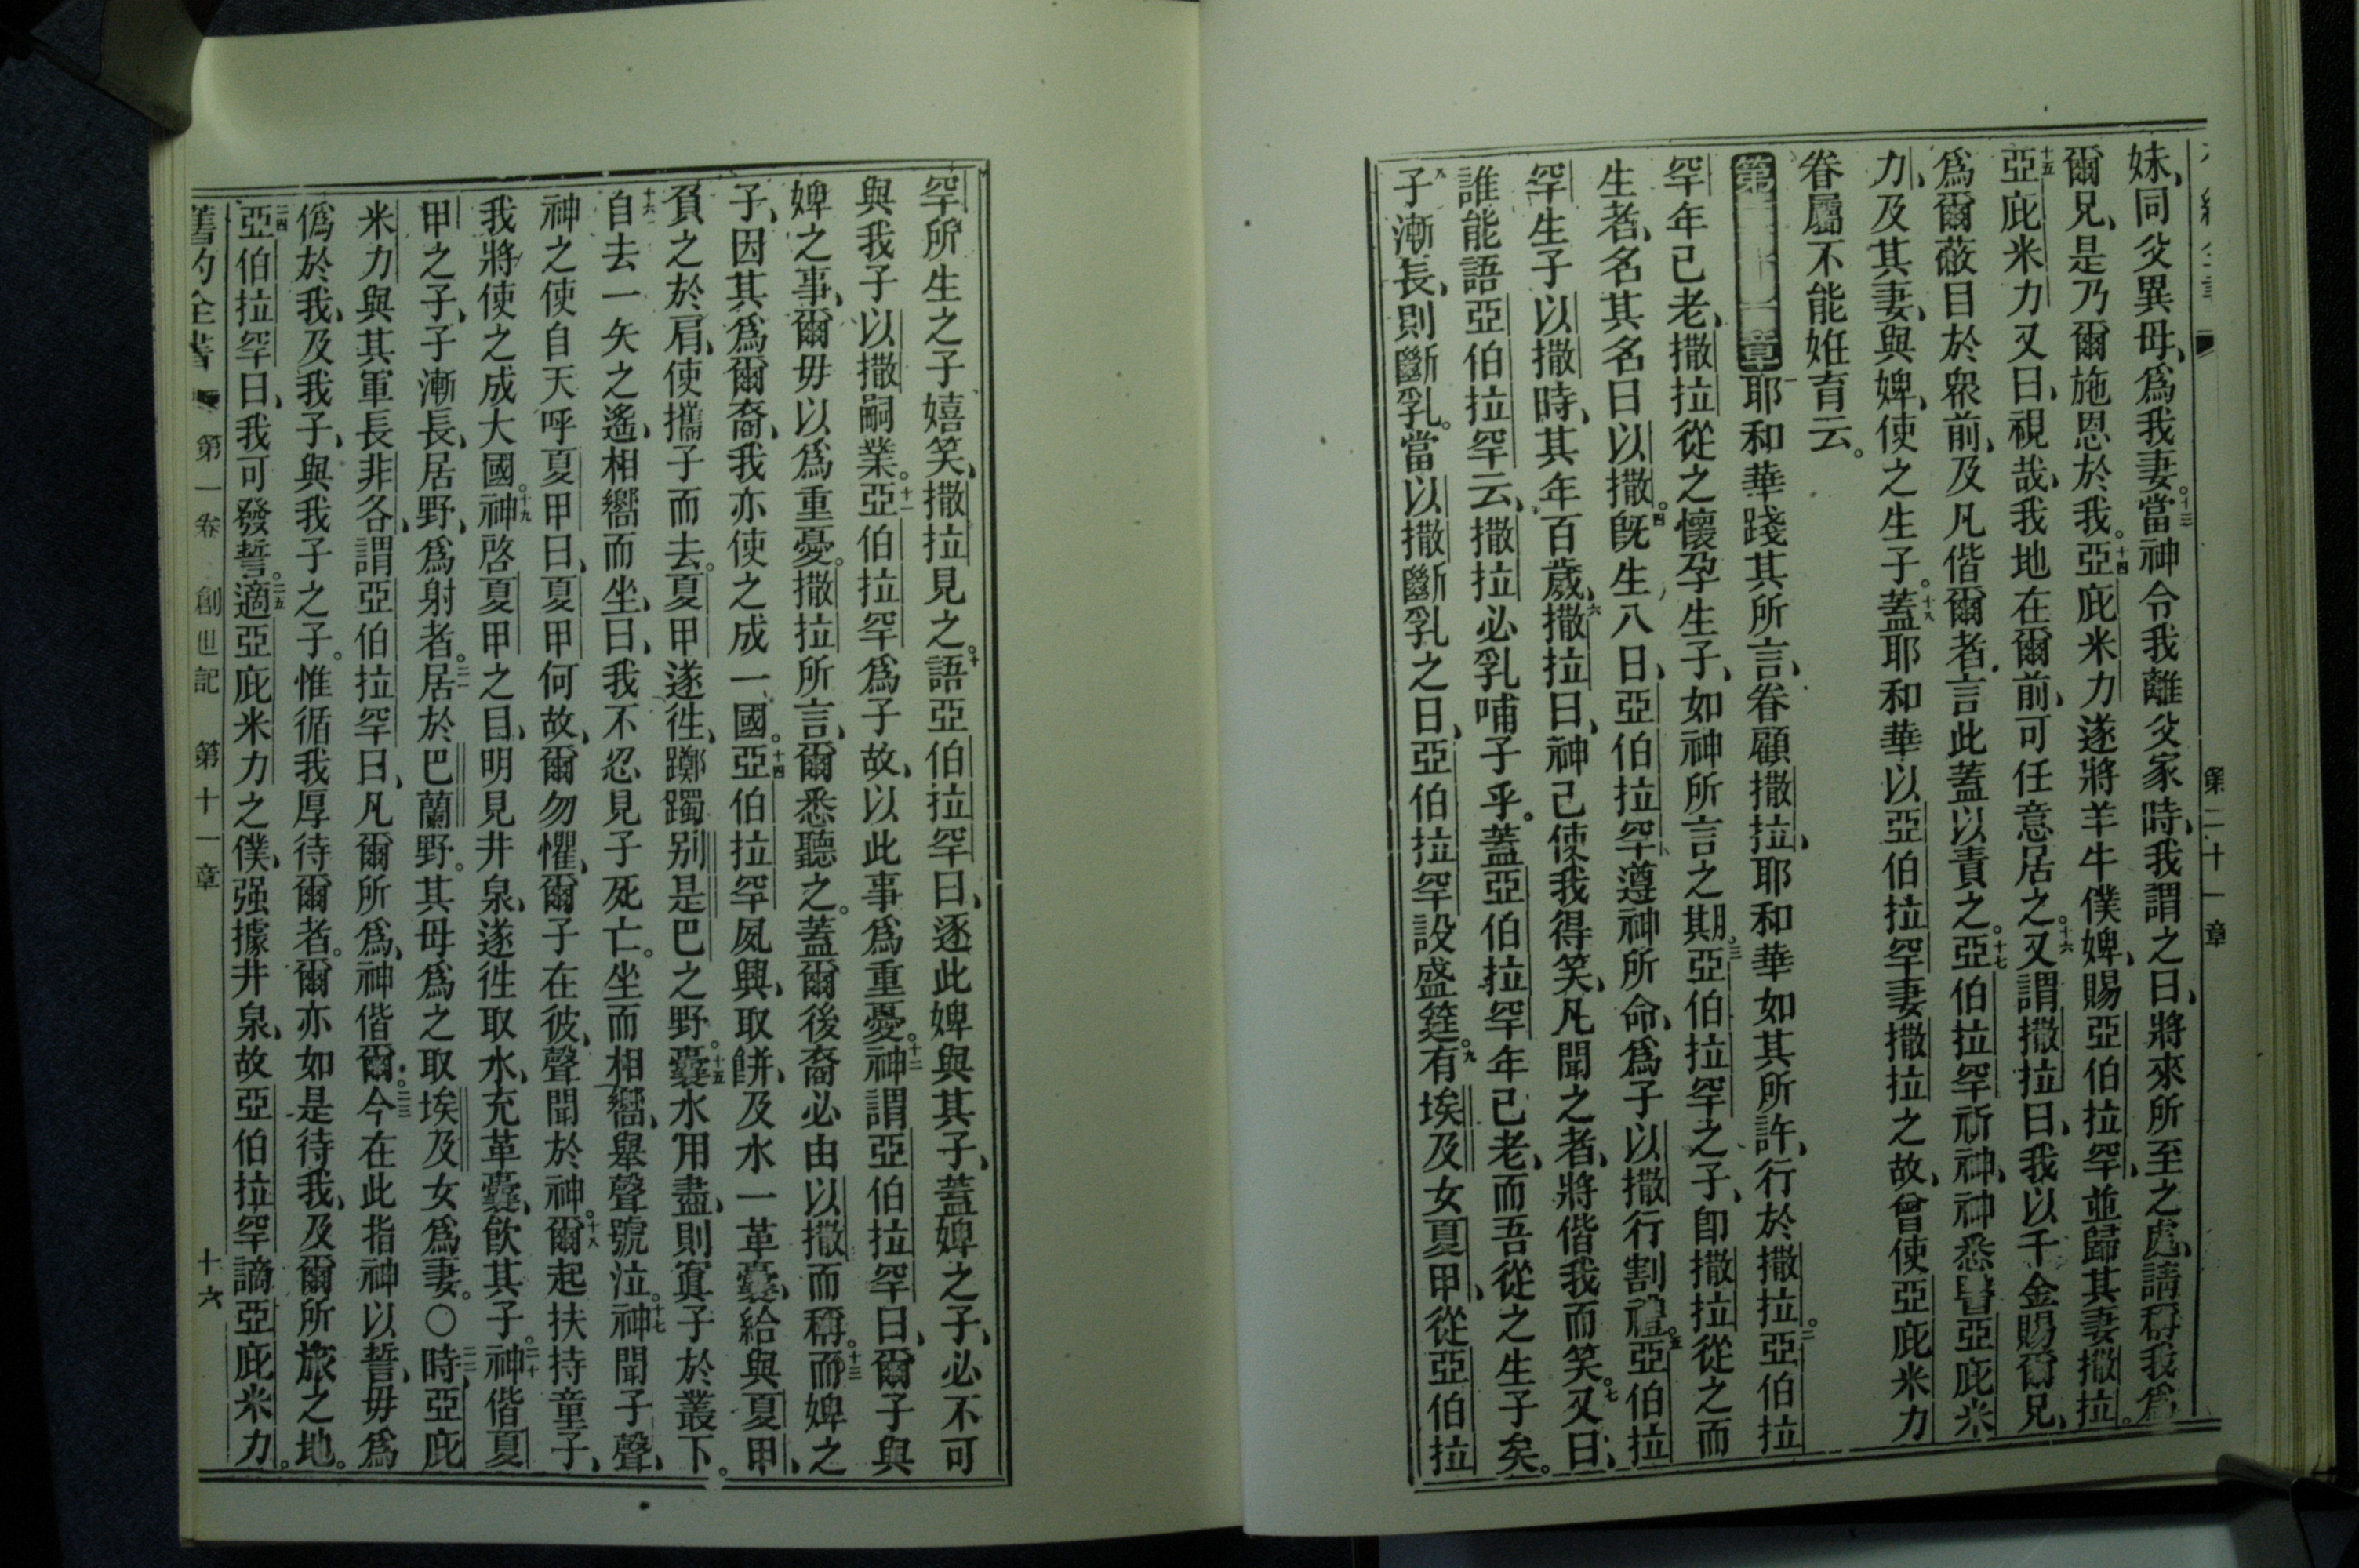 第二十一章
妹、同父異母、爲我妻。十三當神令我離父家時、我謂之曰、將來所至之處、請稱我爲
爾兄、是乃爾施恩於我。十四亞庇米力遂將羊牛僕婢、賜亞伯拉罕、並歸其妻撒拉。
十五亞庇米力又曰、視哉、我地在爾前、可任意居之。十六又謂撒拉曰、我以千金賜爾兄、
爲爾蔽目於衆前、及凡偕爾者、言此蓋以責之。十七亞伯拉罕祈神、神悉醫亞庇米
力、及其妻、與婢、使之生子。十八蓋耶和華以亞伯拉罕妻撒拉之故、曾使亞庇米力
眷屬不能姙育云。
第二十一章一耶和華踐其所言、眷顧撒拉、耶和華如其所許、行於撒拉。二亞伯拉
罕年已老、撒拉從之懷孕生子、如神所言之期。三亞伯拉罕之子、卽撒拉從之而
生者、名其名曰以撒。四旣生八日、亞伯拉罕遵神所命、爲子以撒行割禮。五亞伯拉
罕生子以撒時、其年百歲、六撒拉曰、神已使我得笑、凡聞之者、將偕我而笑。七又曰、
誰能語亞伯拉罕云、撒拉必乳哺子乎。蓋亞伯拉罕年已老、而吾從之生子矣。
八子漸長、則斷乳。當以撒斷乳之日、亞伯拉罕設盛筵。九有埃及女夏甲、從亞伯拉
罕所生之子嬉笑、撒拉見之。十語亞伯拉罕曰、逐此婢與其子、蓋婢之子、必不可
與我子以撒嗣業。十一亞伯拉罕爲子故、以此事爲重憂。十二神謂亞伯拉罕曰、爾子與
婢之事、爾毋以爲重憂。撒拉所言、爾悉聽之。蓋爾後裔必由以撒而稱。十三而婢之
子、因其爲爾裔、我亦使之成一國。十四亞伯拉罕夙興、取餅、及水一革囊、給與夏甲、
負之於肩、使攜子而去。夏甲遂徃、躑躅別是巴之野。十五囊水用盡、則寘子於叢下。
十六自去一矢之遙、相嚮而坐、曰、我不忍見子死亡。坐而相嚮、舉聲號泣。十七神聞子聲、
神之使自天呼夏甲曰、夏甲何故、爾勿懼、爾子在彼、聲聞於神。十八爾起扶持童子、
我將使之成大國。十九神啓夏甲之目、明見井泉、遂徃取水、充革囊、飲其子。二十神偕夏
甲之子、子漸長、居野、爲射者。二一居於巴蘭野。其母爲之取埃及女爲妻。〇二二時、亞庇
米力與其軍長非各、謂亞伯拉罕曰、凡爾所爲、神偕爾。二三今在此指神以誓、毋爲
僞於我、及我子、與我子之子。惟循我厚待爾者。爾亦如是待我、及爾所旅之地。
二四亞伯拉罕曰、我可發誓。二五適亞庇米力之僕、强據井泉、故亞伯拉罕謫亞庇米力。
舊約全書 第一卷 創世記 第十一章 十六